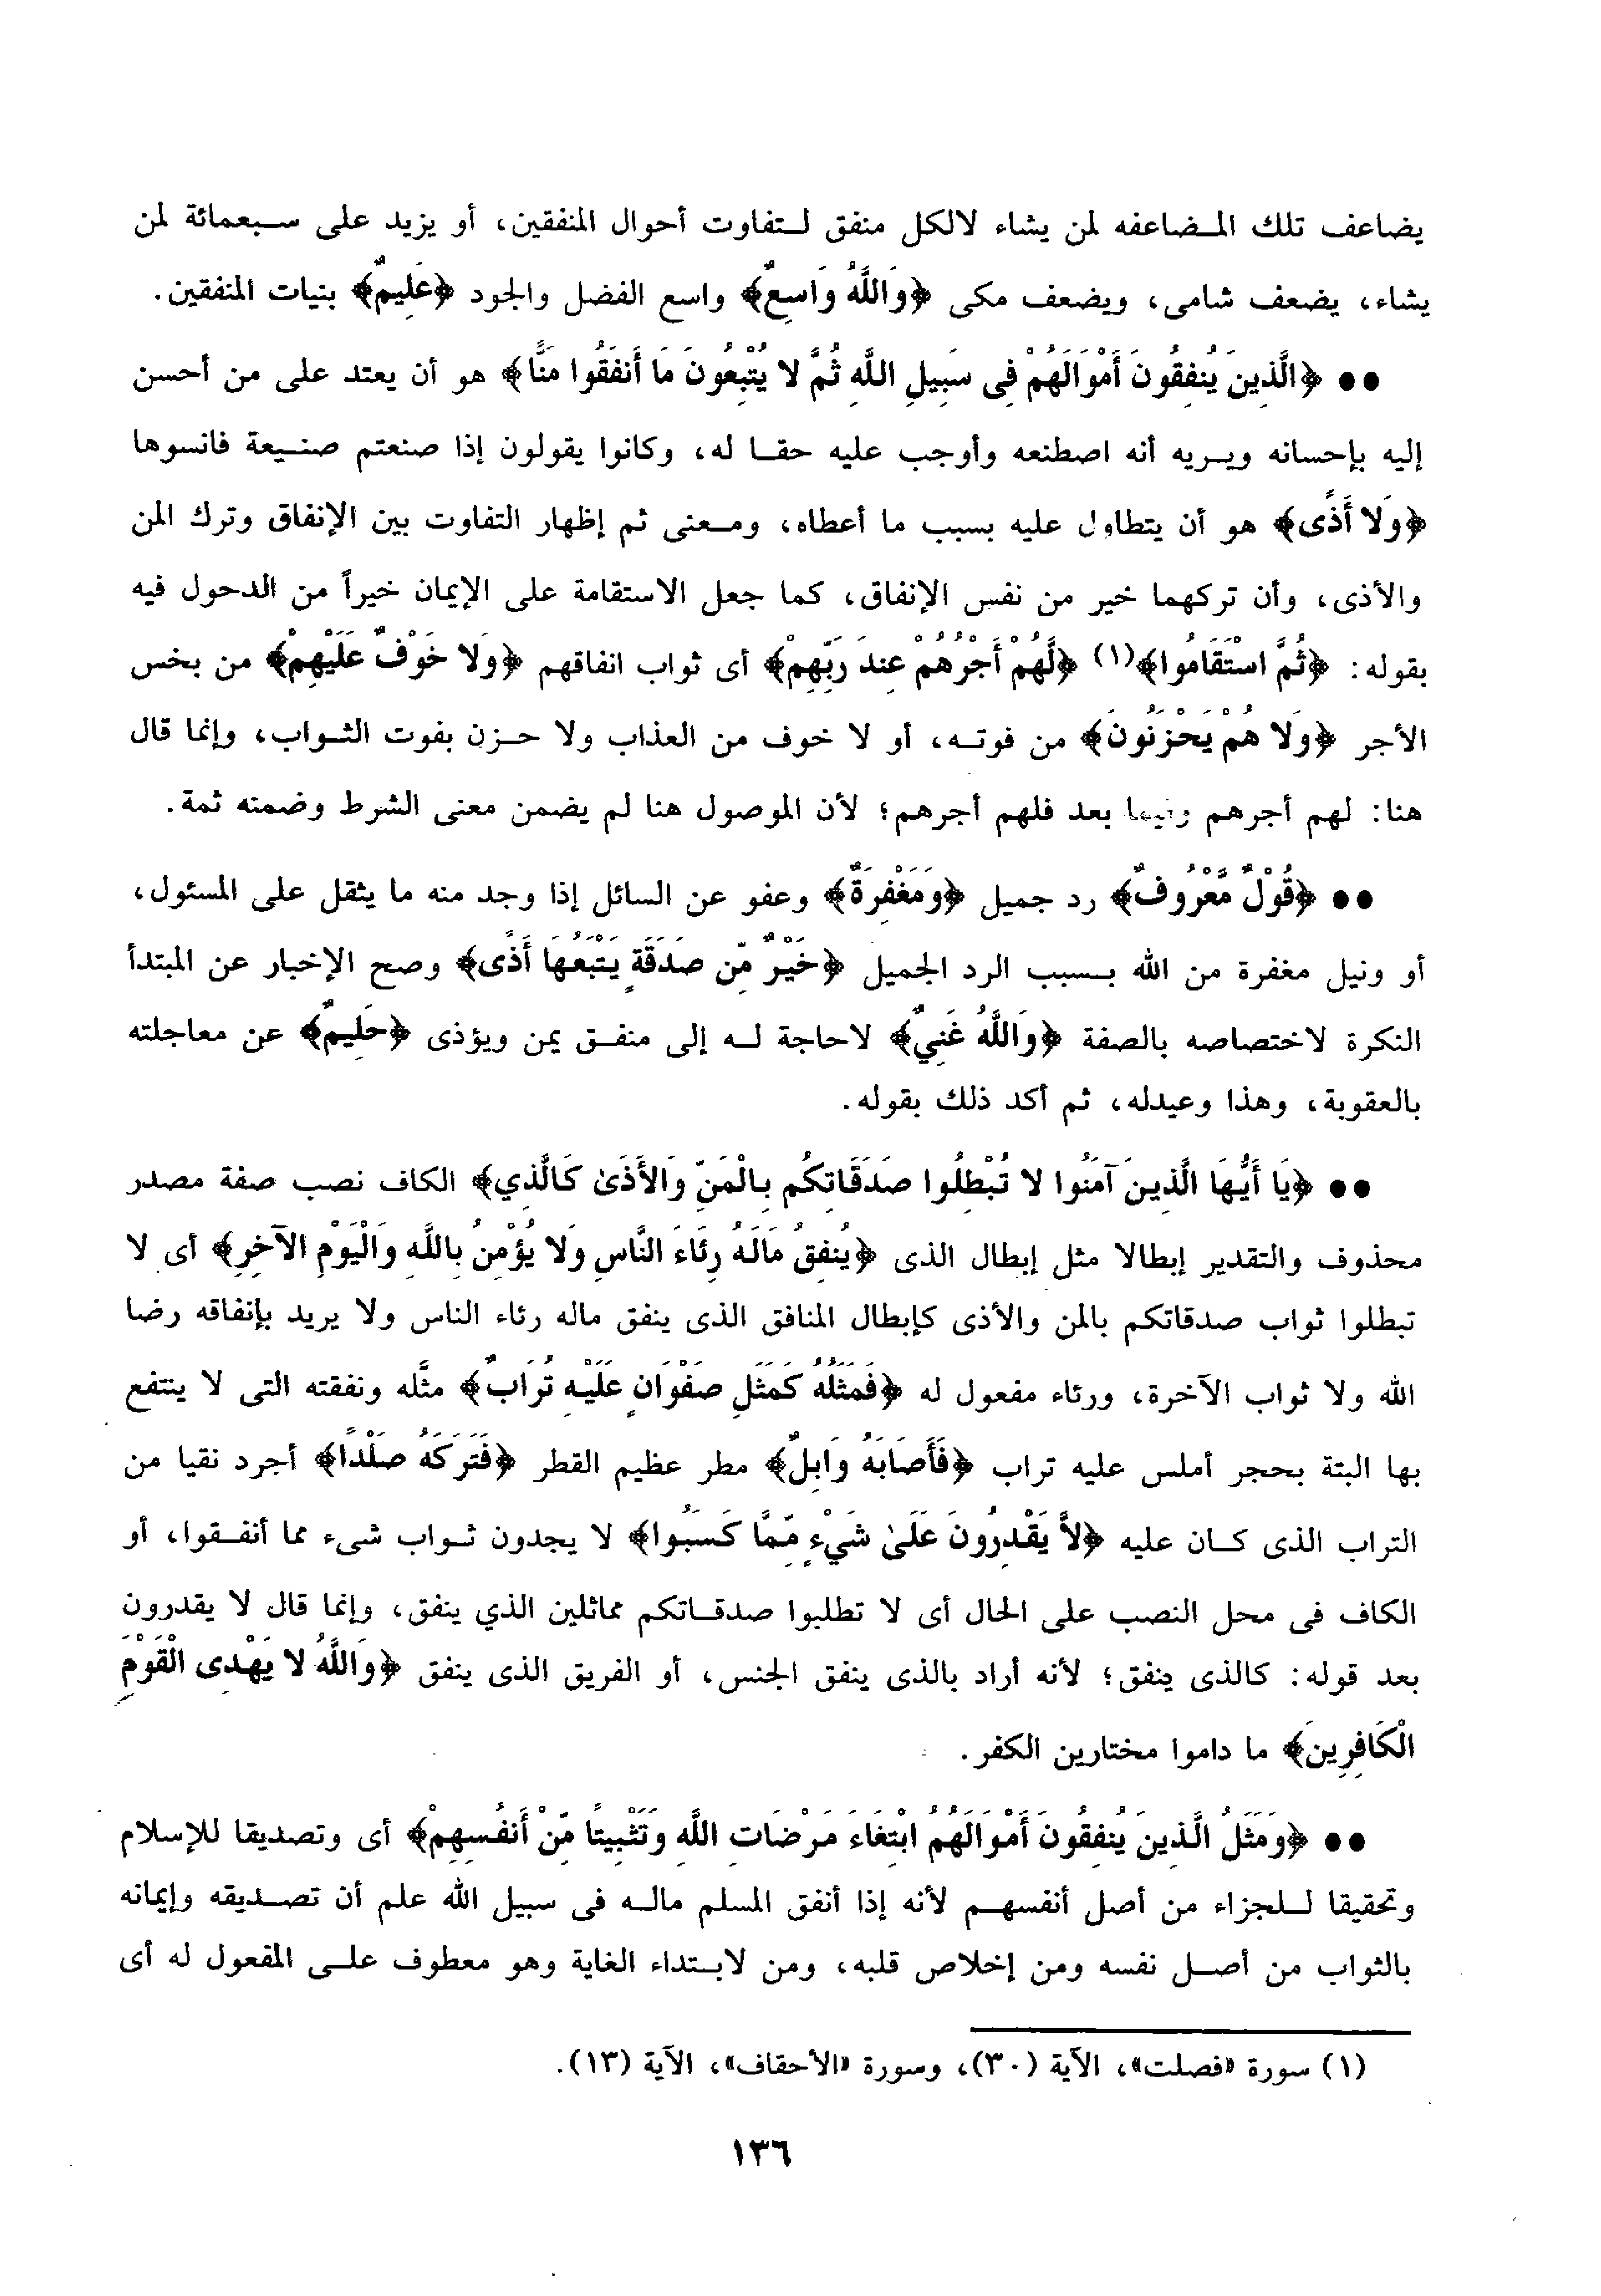 يضاعف تلك المضاعفه لمن يشاء لالكل منفق لتفاوت أحوال المنفقين، أو يزيد على سبعمائة لمن
يشاء، يضعف شامى، ويضعف مكى ﴿وَاللَّهُ وَاسِعٌ﴾ واسع الفضل والجود ﴿عَلِيمٌ﴾ بنيات المنفقين.
●● ﴿الَّذِينَ يُنفِقُونَ أَمْوَالَهُمْ فِى سَبِيلِ اللَّهِ ثُمَّ لا يُتْبِعُونَ مَا أَنفَقُوا مَنًّا﴾ هو أن يعتد على من أحسن
إليه بإحسانه ويريه أنه اصطنعه وأوجب عليه حقا له، وكانوا يقولون إذا صنعتم صنيعة فانسوها
﴿وَلا أَذًى﴾ هو أن يتطاول عليه بسبب ما أعطاه، ومعنى ثم إظهار التفاوت بين الإنفاق وترك المن
والأذى، وأن تركهما خير من نفس الإنفاق، كما جعل الاستقامة على الإيمان خيراً من الدحول فيه
بقوله: ﴿ثُمَّ اسْتَقَامُوا﴾(١) ﴿لَّهُمْ أَجْرُهُمْ عِندَ رَبِّهِمْ﴾ أى ثواب انفاقهم ﴿وَلا خَوْفٌ عَلَيْهِمْ﴾ من بخس
الأجر ﴿وَلا هُمْ يَحْزَنُونَ﴾ من فوته، أو لا خوف من العذاب ولا حزن بفوت الثواب، وإنما قال
هنا: لهم أجرهم وفيما بعد فلهم أجرهم؛ لأن الموصول هنا لم يضمن معنى الشرط وضمنه ثمة.
●● ﴿قَوْلٌ مَّعْرُوفٌ﴾ رد جميل ﴿وَمَغْفِرَةٌ﴾ وعفو عن السائل إذا وجد منه ما يثقل على المسئول،
أو ونيل مغفرة من الله بسبب الرد الجميل ﴿خَيْرٌ مِّن صَدَقَةٍ يَتْبَعُهَا أَذًى﴾ وصح الإخبار عن المبتدأ
النكرة لاختصاصه بالصفة ﴿وَاللَّهُ غَنِيٌّ﴾ لاحاجة له إلى منفق يمن ويؤذى ﴿حَلِيمٌ﴾ عن معاجلته
بالعقوبة، وهذا وعيدله، ثم أكد ذلك بقوله.
●● ﴿يَا أَيُّهَا الَّذِينَ آمَنُوا لا تُبْطِلُوا صَدَقَاتِكُم بِالْمَنِّ وَالأَذَىٰ كَالَّذِي﴾ الكاف نصب صفة مصدر
محذوف والتقدير إبطالا مثل إبطال الذى ﴿يُنفِقُ مَالَهُ رِئَاءَ النَّاسِ وَلا يُؤْمِنُ بِاللَّهِ وَالْيَوْمِ الآخِرِ﴾ أى لا
تبطلوا ثواب صدقاتكم بالمن والأذى كإبطال المنافق الذى ينفق ماله رئاء الناس ولا يريد بإنفاقه رضا
الله ولا ثواب الآخرة، ورئاء مفعول له ﴿فَمَثَلُهُ كَمَثَلِ صَفْوَانٍ عَلَيْهِ تُرَابٌ﴾ مثَّله ونفقته التى لا ينتفع
بها البتة بحجر أملس عليه تراب ﴿فَأَصَابَهُ وَابِلٌ﴾ مطر عظيم القطر ﴿فَتَرَكَهُ صَلْدًا﴾ أجرد نقيا من
التراب الذى كان عليه ﴿لاَّ يَقْدِرُونَ عَلَىٰ شَيْءٍ مِّمَّا كَسَبُوا﴾ لا يجدون ثواب شىء مما أنفقوا، أو
الكاف فى محل النصب على الحال أى لا تطلبوا صدقاتكم مماثلين الذي ينفق، وإنما قال لا يقدرون
بعد قوله: كالذى ينفق؛ لأنه أراد بالذى ينفق الجنس، أو الفريق الذى ينفق ﴿وَاللَّهُ لا يَهْدِى الْقَوْمَ
الْكَافِرِينَ﴾ ما داموا مختارين الكفر.
●● ﴿وَمَثَلُ الَّذِينَ يُنفِقُونَ أَمْوَالَهُمُ ابْتِغَاءَ مَرْضَاتِ اللَّهِ وَتَثْبِيتًا مِّنْ أَنفُسِهِمْ﴾ أى وتصديقا للإسلام
وتحقيقا للجزاء من أصل أنفسهم لأنه إذا أنفق المسلم ماله فى سبيل الله علم أن تصديقه وإيمانه
بالثواب من أصل نفسه ومن إخلاص قلبه، ومن لابتداء الغاية وهو معطوف على المفعول له أى
(١) سورة «فصلت»، الآية (٣٠)، وسورة «الأحقاف»، الآية (١٣).
١٣٦